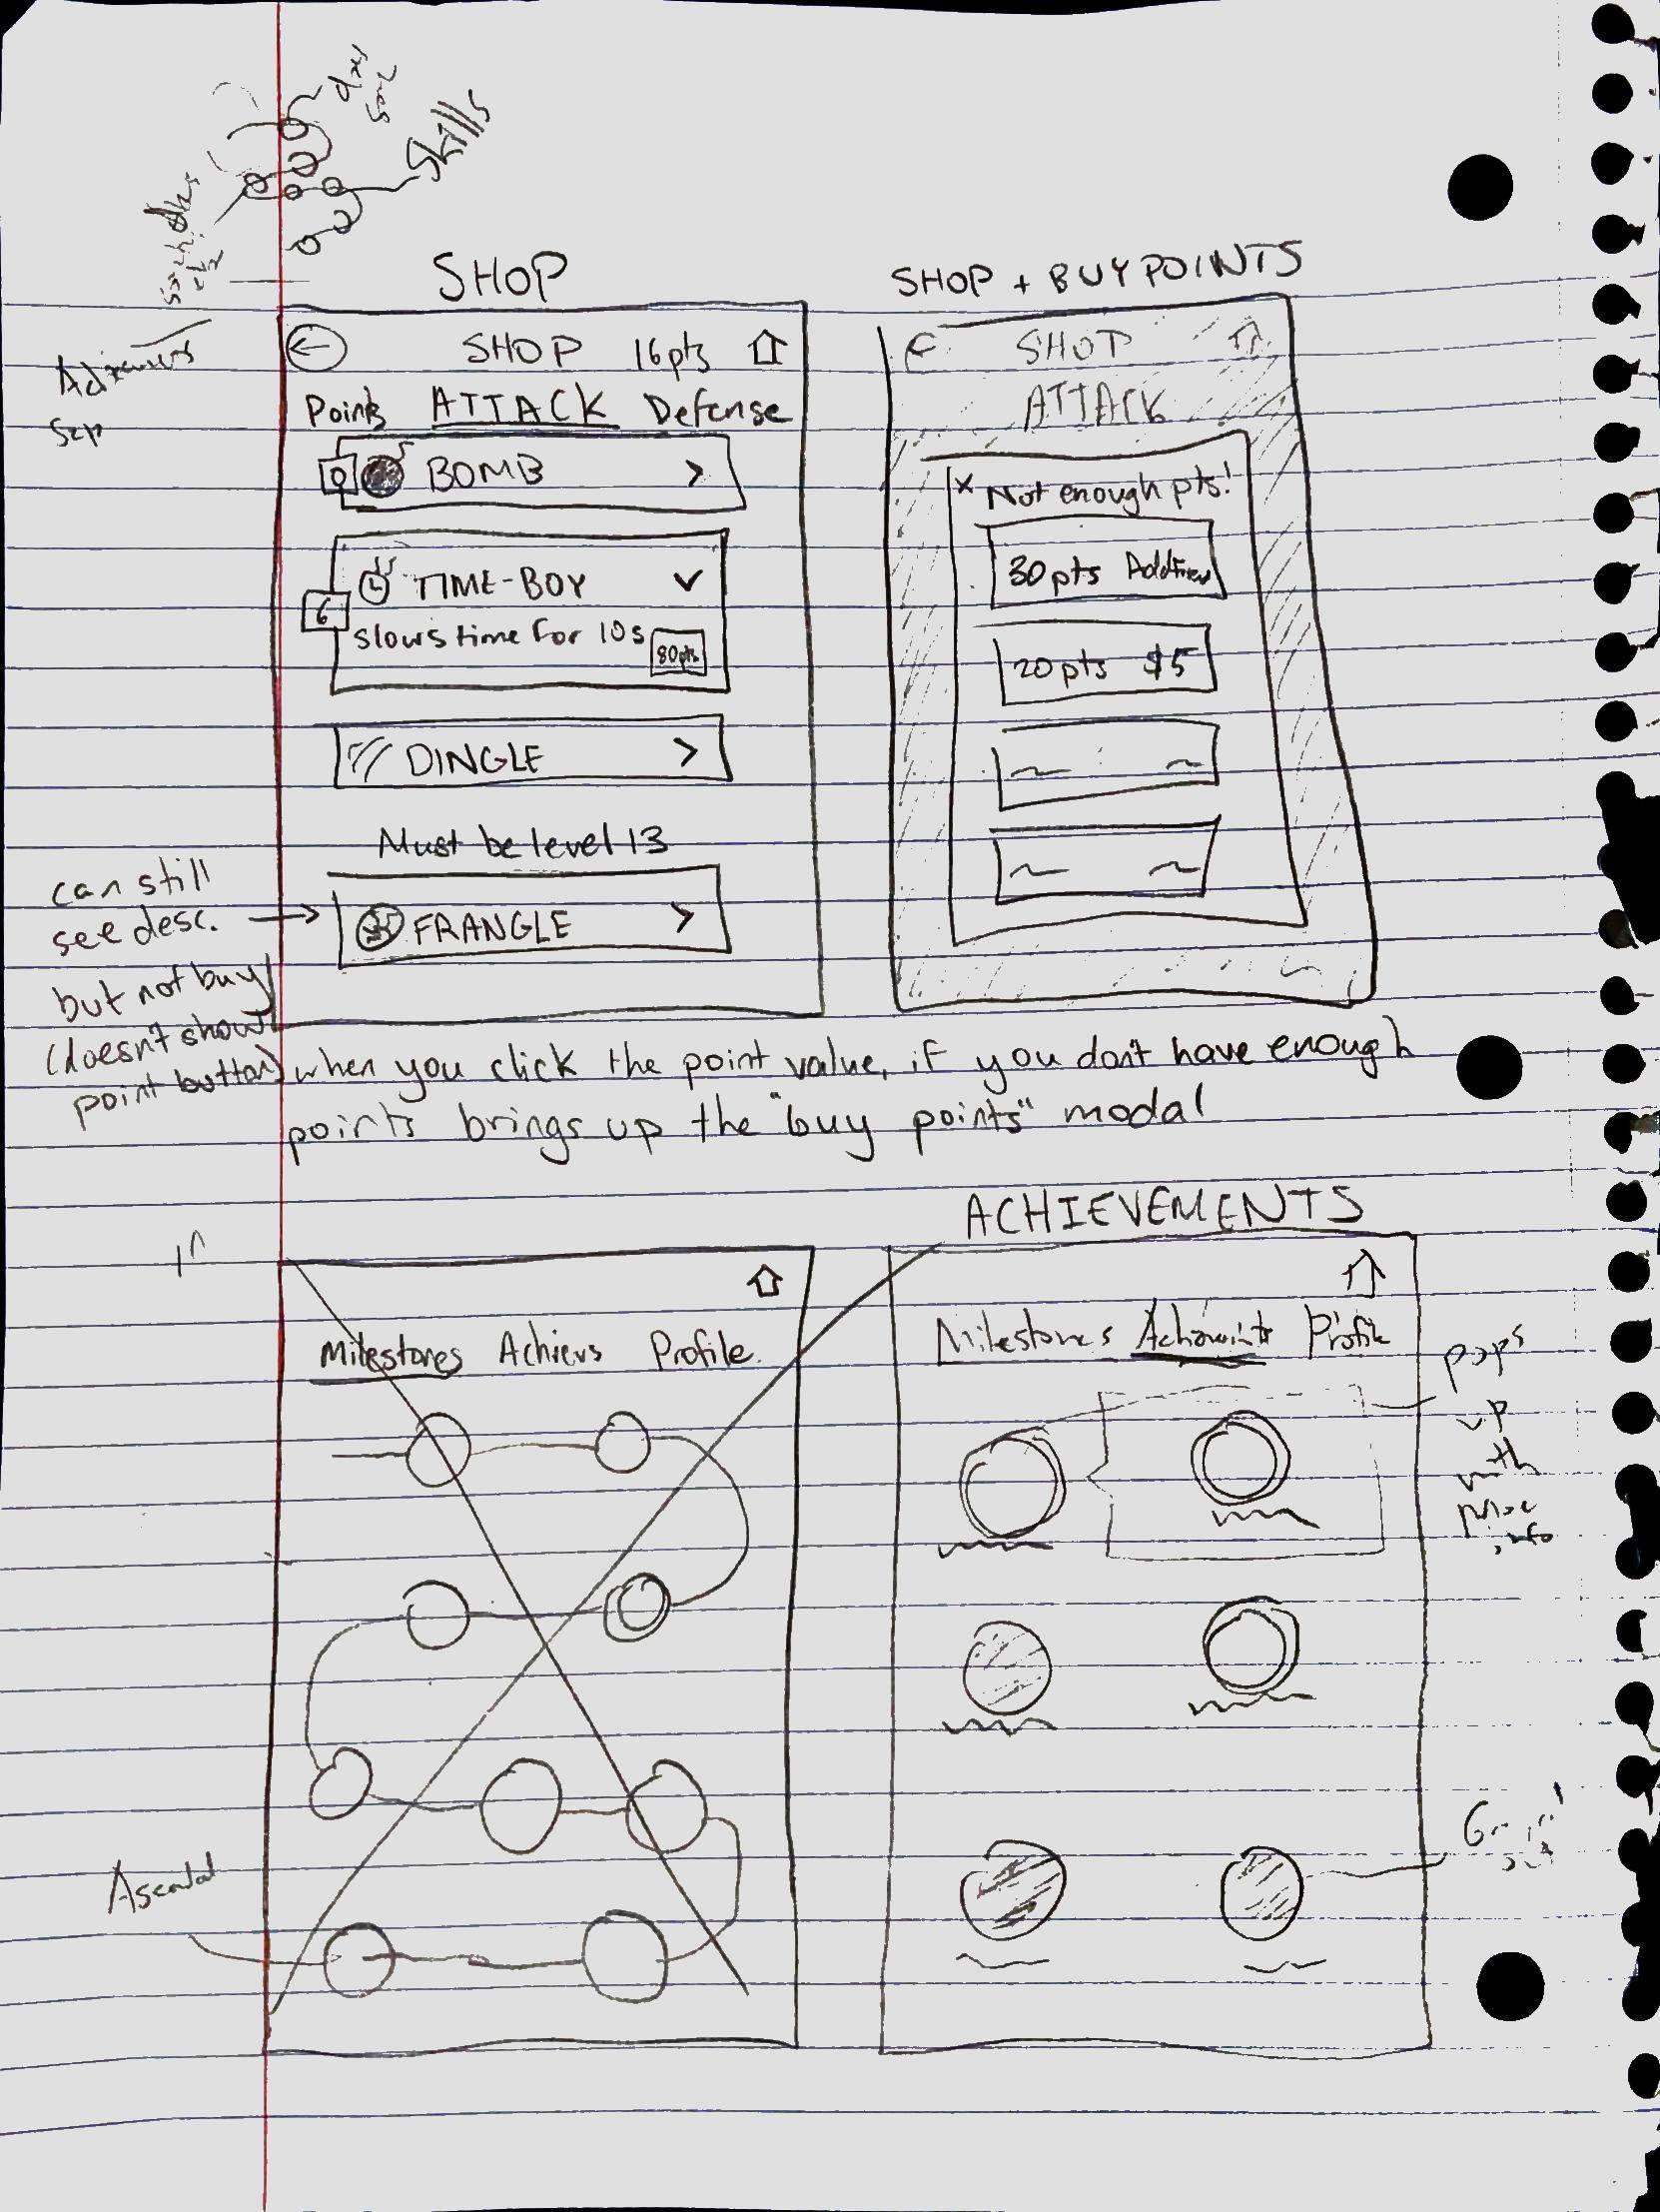 Skills
SHOP
SHOP + BUY POINTS
SHOP 16pts
Points ATTACK Defense
0 BOMB >
TIME-BOY
6
slows time for 10s
80pts
DINGLE >
Must be level 13
FRANGLE >
can still
see desc.
but not buy
(doesn't show
point button)
SHOP
ATTACK
x Not enough pts!
30pts
20pts $5
when you click the point value, if you don't have enough
points brings up the "buy points" modal
ACHIEVEMENTS
Milestones Achievs Profile
Milestones Profile
pops
up
with
info